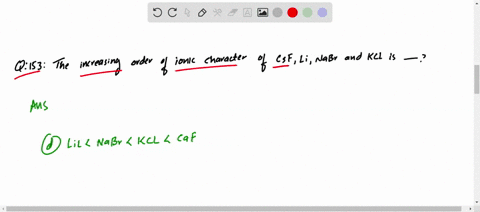 Q:153: The increasing order of ionic character of CsF, Li, NaBr and KCl is — ?
Ans
(d) LiL < NaBr < KCL < CaF